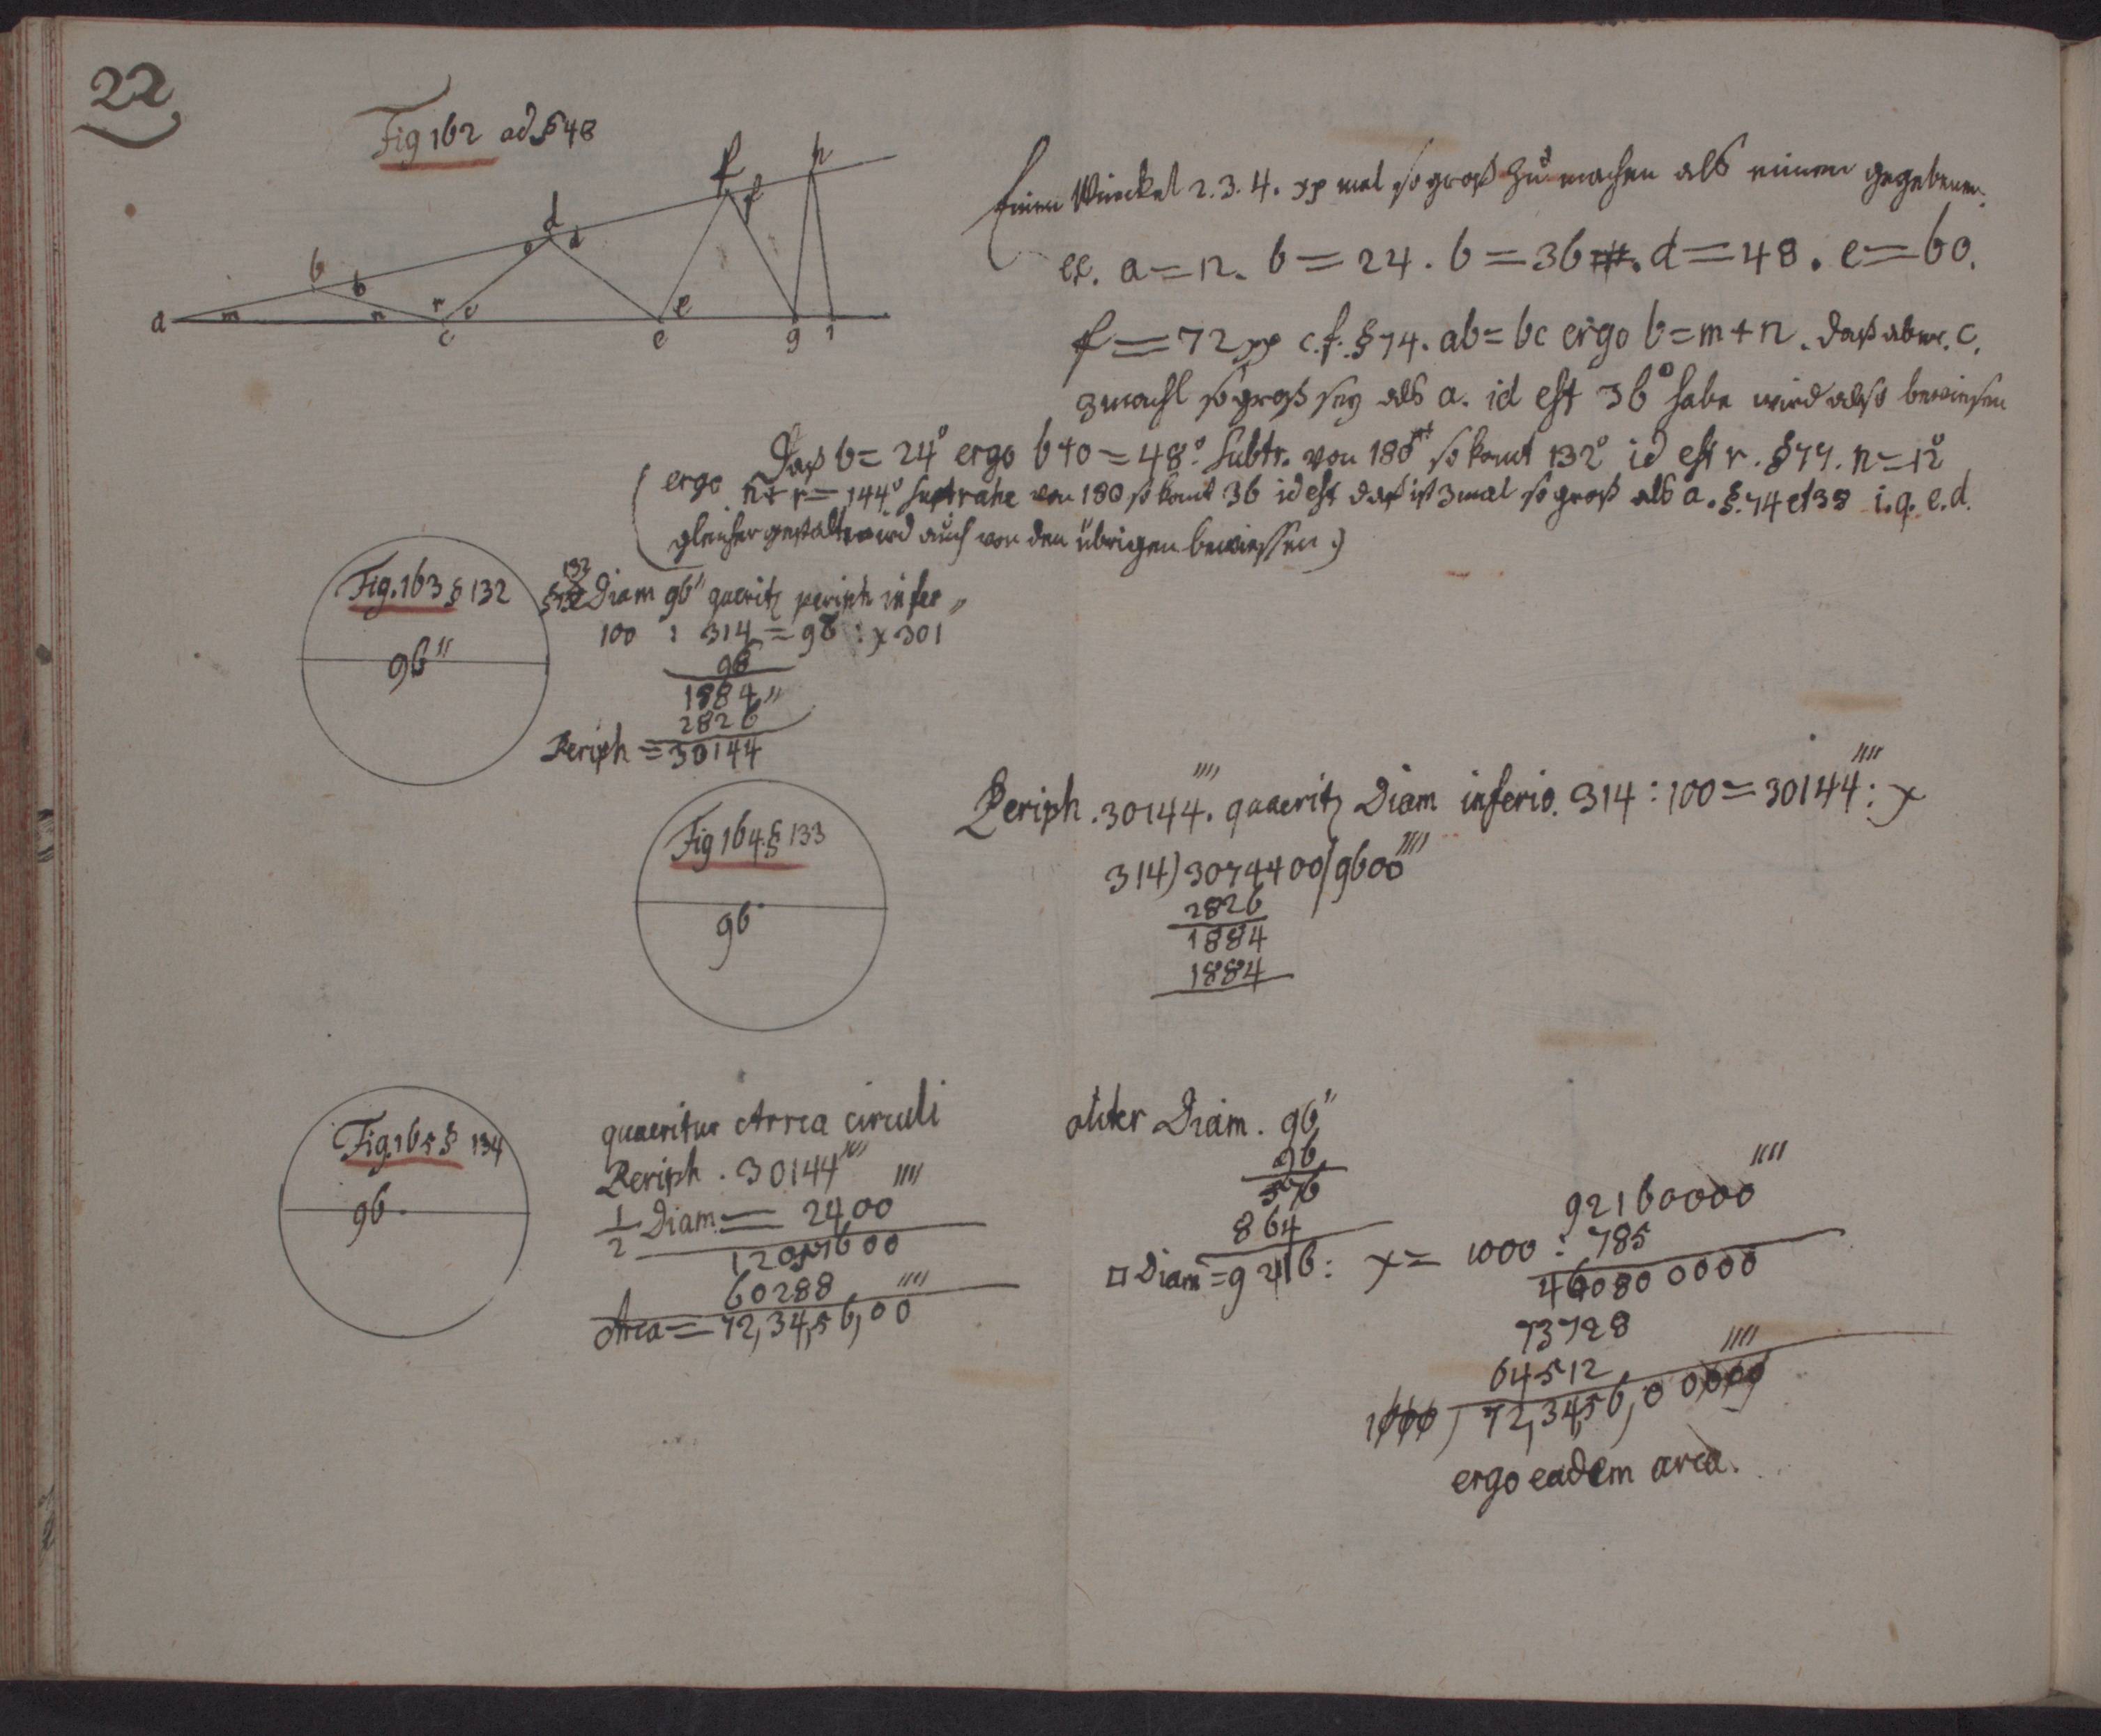 22
Fig 162 ad § 48
b b d o d f f h
a m n r c c e e g i
Einen Winckel 2. 3. 4. xp mal so groß zu machen als einen gegebenen.
ex. a = 12. b = 24. b = 36. d = 48. e = 60.
f = 72 xp c.f. § 74. ab = bc ergo b = m + n. daß aber c.
3 mahl so groß sey als a. id est 36° habe wird also bewiesen
Daß b = 24° ergo b + o = 48°. Subtr. von 180 so komt 132° id est r. § 77. n = 12°
ergo n + r = 144° suptrahe von 180 so komt 36 id est daß ist 3 mal so groß als a. §. 74 et 38 i. q. e. d.
gleicher gestalt wird auch von den übrigen bewiessen.)
Fig. 163 § 132
96''
132
Diam 96'' quaerit periph infer
100 : 314 = 96 : x 301
96
1884''
2826
Periph = 30144
Fig 164. § 133
96
Periph. 30144''''. quaerit Diam inferio. 314 : 100 = 30144'''' : x
314) 3014400 / 9600''''
2826
1884
1884
Fig. 165 § 134
96.
quaeritur Arrea circuli
Periph. 30144''''
1/2 Diam = 2400''''
12057600
60288
Area = 72,34,56,00''''
aliter Diam. 96''
96
576
864
□ Diam = 9216 : x = 1000 : 785
92160000''''
460800000
73728
64512
1000) 72,34,56,00000''''
ergo eadem area.